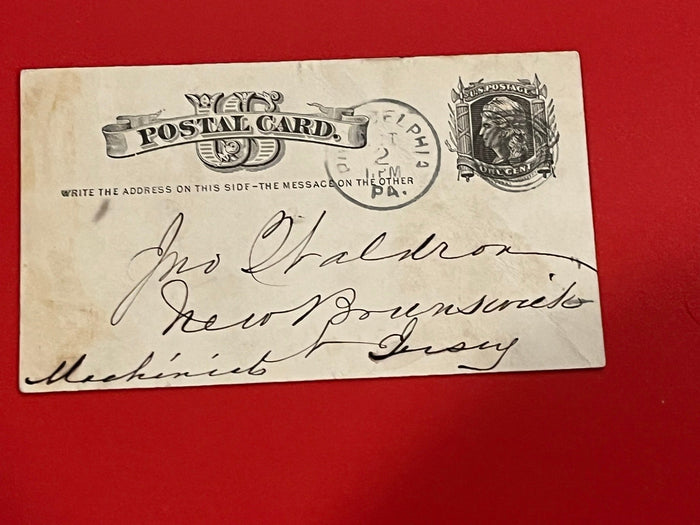 US
POSTAL CARD.
U.S. POSTAGE
ONE CENT
PHILADELPHIA
2
1 PM
PA.
WRITE THE ADDRESS ON THIS SIDE-THE MESSAGE ON THE OTHER
Jno Waldron
New Brunswick
N Jersey
Machinist